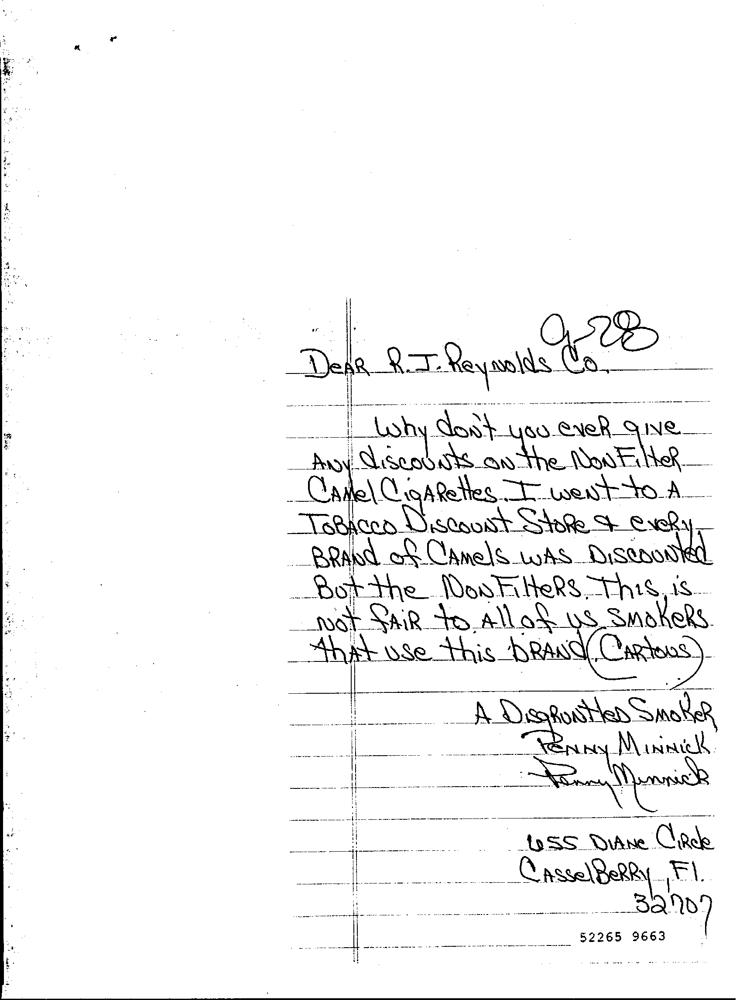 9-28
Dear R.J. Reynolds Co.
Why don't you ever give
any discounts on the NonFilter
Camel Cigarettes. I went to a
Tobacco Discount Store & every
brand of Camels was discounted
But the NonFilters. This is
not fair to all of us smokers
that use this brand. (Cartons)
A Disgrontled Smoker
Penny Minnick
Penny Minnick
655 Diane Circle
CasselBerry, Fl.
32707
52265 9663